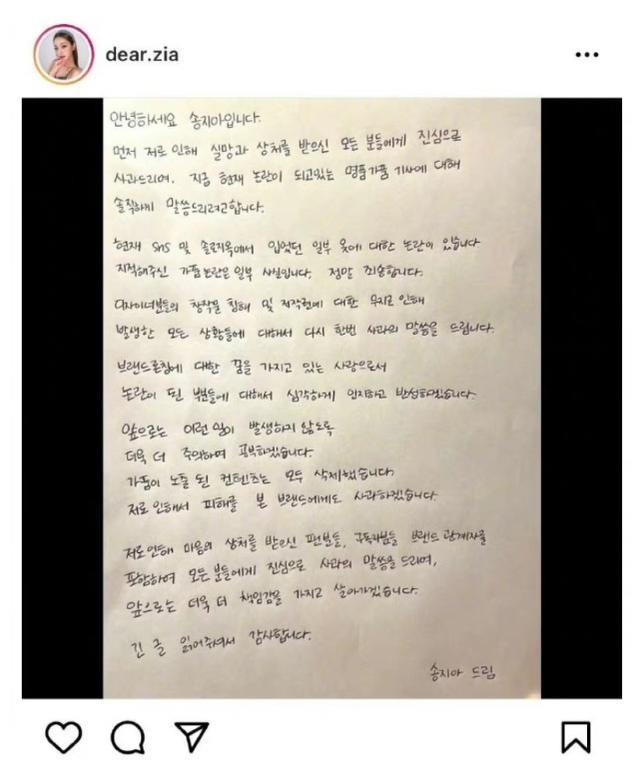 dear.zia
안녕하세요 송지아입니다.
먼저 저로 인해 실망과 상처를 받으신 모든 분들에게 진심으로
사과드리며, 지금 현재 논란이 되고있는 명품가품 기사에 대해
솔직하게 말씀드리려고합니다.
현재 sns 및 솔로지옥에서 입었던 일부 옷에 대한 논란이 있습니다
지적해주신 가품논란은 일부 사실입니다. 정말 죄송합니다.
디자이너분들의 창작물 침해 및 저작권에 대한 무지로 인해
발생한 모든 상황들에 대해서 다시 한번 사과의 말씀을 드립니다.
브랜드론칭에 대한 꿈을 가지고 있는 사람으로서
논란이 된 부분들에 대해서 심각하게 인지하고 반성하겠습니다.
앞으로는 이런 일이 발생하지 않도록
더욱 더 주의하며 공부하겠습니다.
가품이 노출 된 컨텐츠는 모두 삭제했습니다.
저로 인해서 피해를 본 브랜드에게도 사과하겠습니다.
저로인해 마음의 상처를 받으신 팬분들, 구독자분들 브랜드 관계자를
포함하여 모든 분들에게 진심으로 사과의 말씀을 드리며,
앞으로는 더욱 더 책임감을 가지고 살아가겠습니다.
긴 글 읽어주셔서 감사합니다.
송지아 드림